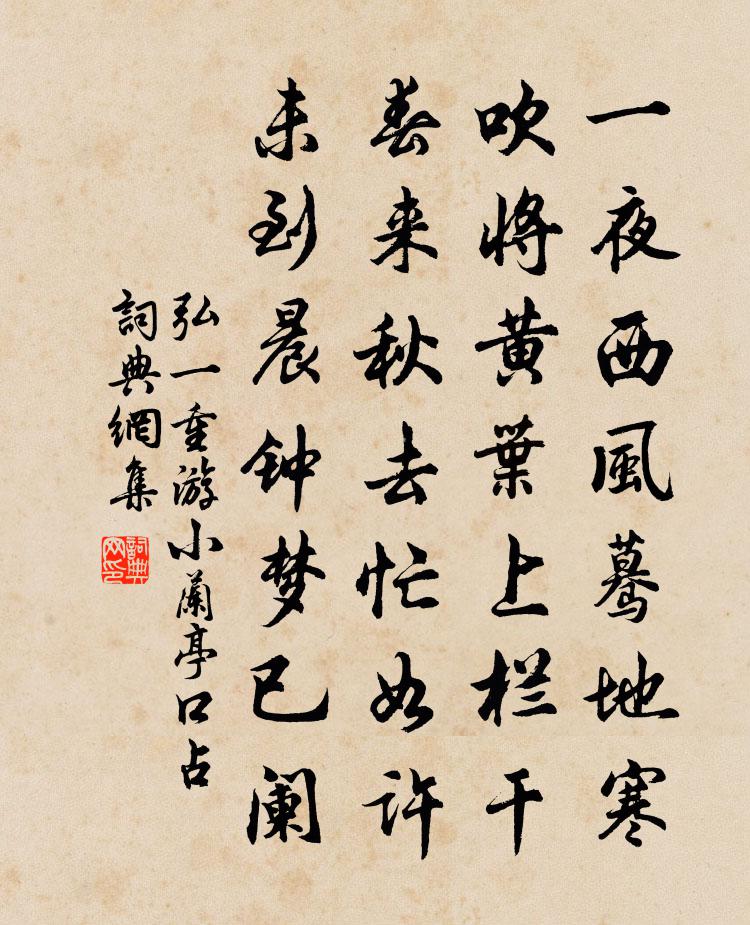 一夜西風蓦地寒
吹將黃葉上栏干
春来秋去忙如许
未到晨钟梦已阑
弘一重游小蘭亭口占
詞典網集
詞典網印